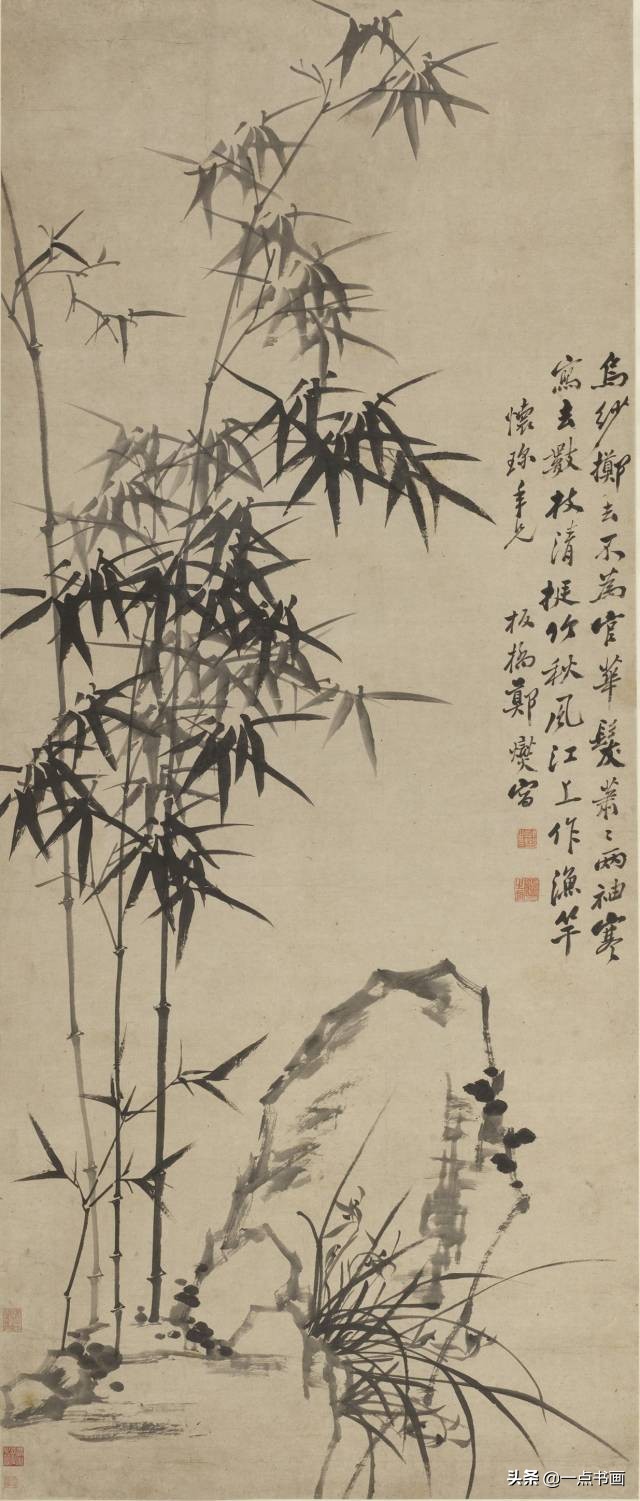 烏紗擲去不為官華髮蕭〻兩袖寒
寫去數枝清挺竹秋風江上作漁竿
懷珎年兄 板橋鄭燮寫
头条 @一点书画